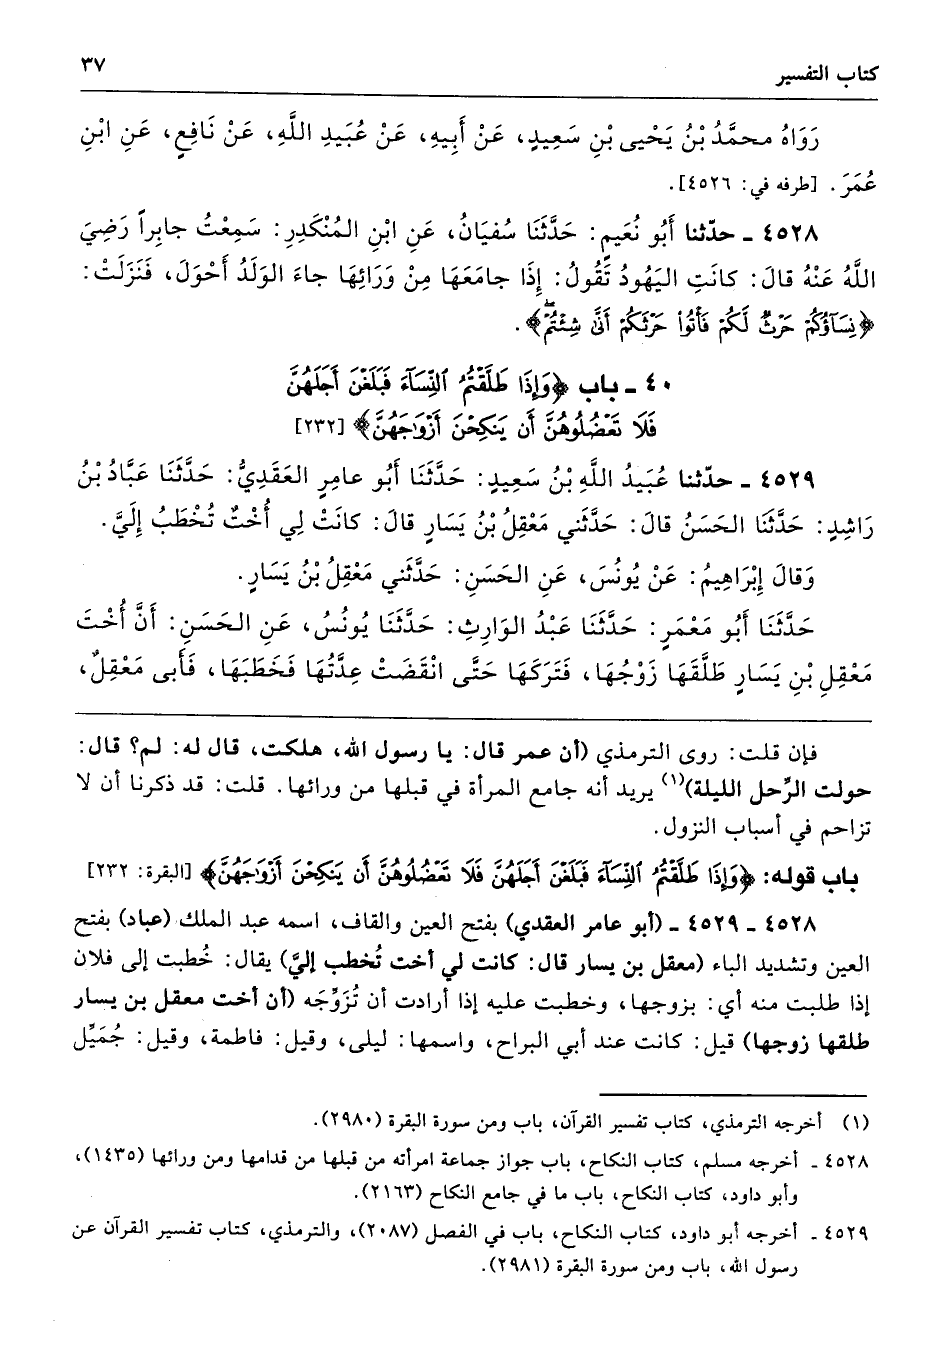 كتاب التفسير
٣٧
رَوَاهُ محمَّدُ بْنُ يَحْيى بْنِ سَعِيدٍ، عَنْ أَبِيهِ، عَنْ عُبَيدِ اللَّهِ، عَنْ نَافِعٍ، عَنِ ابْنِ
عُمَرَ. [طرفه في: ٤٥٢٦].
٤٥٢٨ - حدّثنا أَبُو نُعَيمٍ: حَدَّثَنَا سُفيَانُ، عَنِ ابْنِ المُنْكَدِرِ: سَمِعْتُ جابِراً رَضِيَ
اللَّهُ عَنْهُ قالَ: كانَتِ اليَهُودُ تَقُولُ: إِذَا جامَعَهَا مِنْ وَرَائِهَا جاءَ الوَلَدُ أَحْوَلَ، فَنَزَلَتْ:
﴿نِسَآؤُكُمْ حَرْثٌ لَّكُمْ فَأْتُوا۟ حَرْثَكُمْ أَنَّىٰ شِئْتُمْ﴾.
٤٠ - باب ﴿وَإِذَا طَلَّقْتُمُ ٱلنِّسَآءَ فَبَلَغْنَ أَجَلَهُنَّ
فَلَا تَعْضُلُوهُنَّ أَن يَنكِحْنَ أَزْوَٰجَهُنَّ﴾ [٢٣٢]
٤٥٢٩ - حدّثنا عُبَيدُ اللَّهِ بْنُ سَعِيدٍ: حَدَّثَنَا أَبُو عامِرٍ العَقَدِيُّ: حَدَّثَنَا عَبَّادُ بْنُ
رَاشِدٍ: حَدَّثَنَا الحَسَنُ قالَ: حَدَّثَني مَعْقِلُ بْنُ يَسَارٍ قالَ: كانَتْ لِي أُخْتٌ تُخْطَبُ إِلَيَّ.
وَقالَ إِبْرَاهِيمُ: عَنْ يُونُسَ، عَنِ الحَسَنِ: حَدَّثَني مَعْقِلُ بْنُ يَسَارٍ.
حَدَّثَنَا أَبُو مَعْمَرٍ: حَدَّثَنَا عَبْدُ الوَارِثِ: حَدَّثَنَا يُونُسُ، عَنِ الحَسَنِ: أَنَّ أُخْتَ
مَعْقِلِ بْنِ يَسَارٍ طَلَّقَهَا زَوْجُهَا، فَتَرَكَهَا حَتَّى انْقَضَتْ عِدَّتُهَا فَخَطَبَهَا، فَأَبى مَعْقِلٌ،
فإن قلت: روى الترمذي (أن عمر قال: يا رسول الله، هلكت، قال له: لم؟ قال:
حولت الرَّحل الليلة)(١) يريد أنه جامع المرأة في قبلها من ورائها. قلت: قد ذكرنا أن لا
تزاحم في أسباب النزول.
باب قوله: ﴿وَإِذَا طَلَّقْتُمُ ٱلنِّسَآءَ فَبَلَغْنَ أَجَلَهُنَّ فَلَا تَعْضُلُوهُنَّ أَن يَنكِحْنَ أَزْوَٰجَهُنَّ﴾ [البقرة: ٢٣٢]
٤٥٢٨ - ٤٥٢٩ - (أبو عامر العقدي) بفتح العين والقاف، اسمه عبد الملك (عباد) بفتح
العين وتشديد الباء (معقل بن يسار قال: كانت لي أخت تُخطب إليَّ) يقال: خُطبت إلى فلان
إذا طلبت منه أي: بزوجها، وخطبت عليه إذا أرادت أن تُزَوِّجَه (أن أخت معقل بن يسار
طلقها زوجها) قيل: كانت عند أبي البراح، واسمها: ليلى، وقيل: فاطمة، وقيل: جُمَيِّل
(١) أخرجه الترمذي، كتاب تفسير القرآن، باب ومن سورة البقرة (٢٩٨٠).
٤٥٢٨ - أخرجه مسلم، كتاب النكاح، باب جواز جماعة امرأته من قبلها من قدامها ومن ورائها (١٤٣٥)،
وأبو داود، كتاب النكاح، باب ما في جامع النكاح (٢١٦٣).
٤٥٢٩ - أخرجه أبو داود، كتاب النكاح، باب في الفصل (٢٠٨٧)، والترمذي، كتاب تفسير القرآن عن
رسول الله، باب ومن سورة البقرة (٢٩٨١).